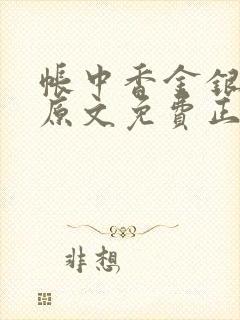 帳中香金銀
原文免費正
非想